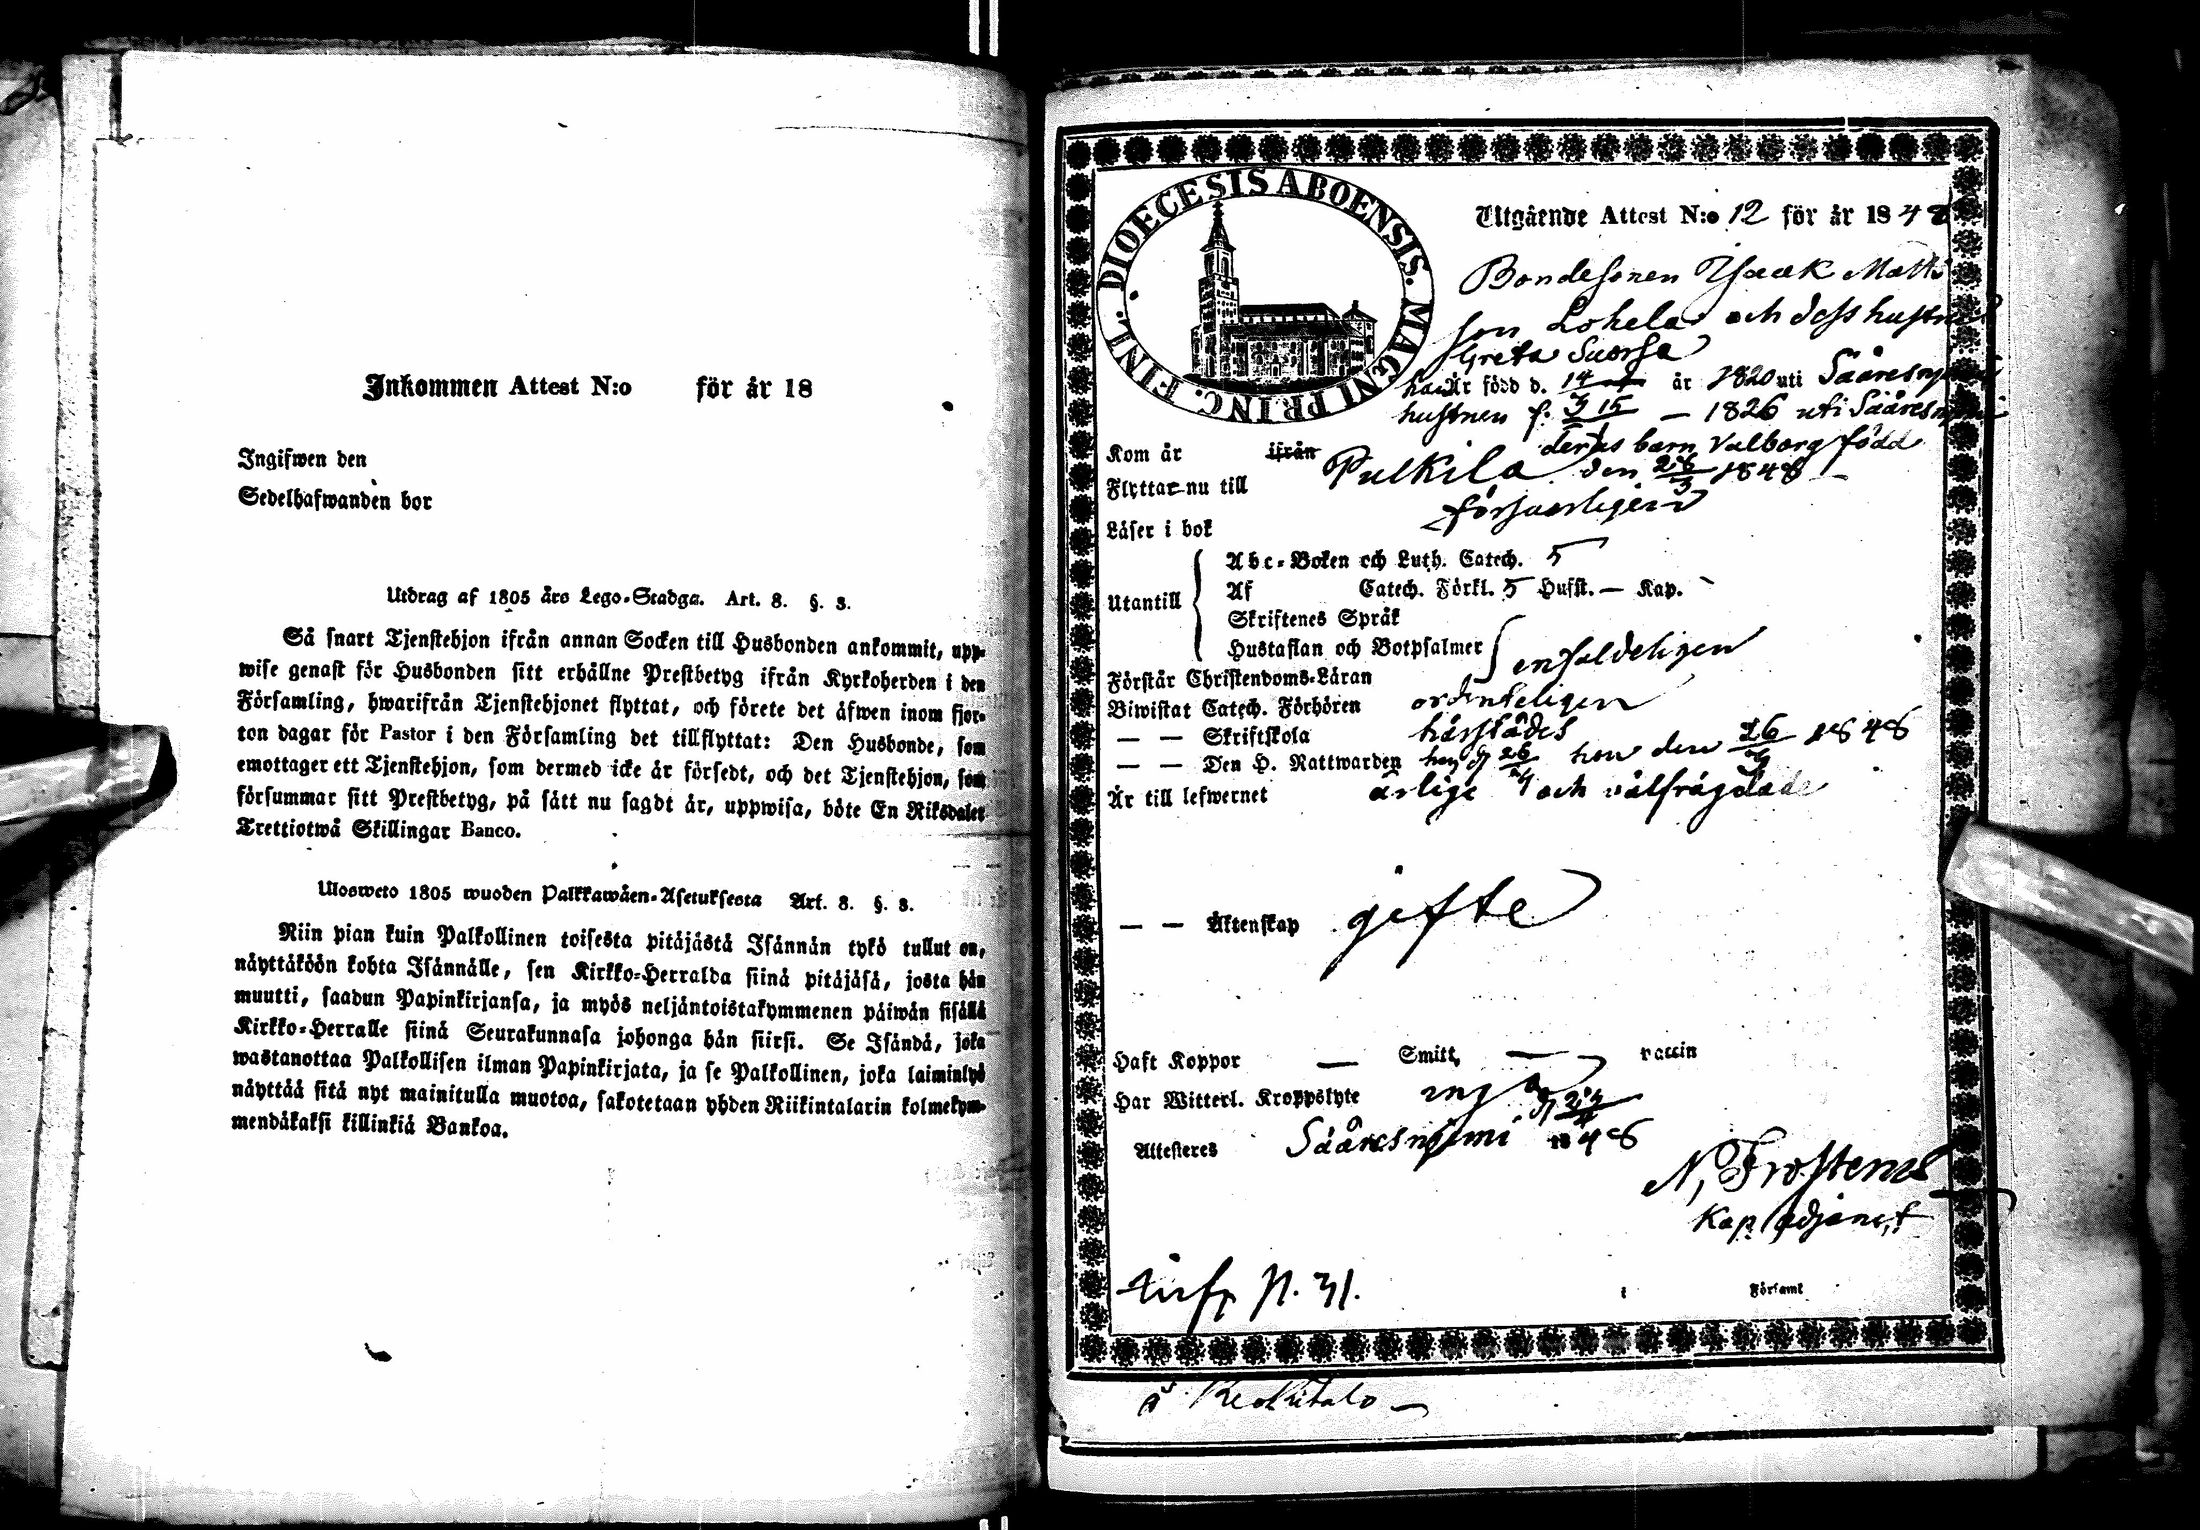 Inkommen Attest N:o för år 18
Ingifwen den
Sedelhafwanden bor
Utdrag af 1805 års Lego-Stadga. Art. 8. §. 3.
Så snart Tjenstehjon ifrån annan Socken till Husbonden ankommit, upp-
wise genast för Husbonden sitt erhållne Prestbetyg ifrån Kyrkoherden i den
Församling, hwarifrån Tjenstehjonet flyttat, och förete det äfwen inom fjor-
ton dagar för Pastor i den Församling det tillflyttat: Den Husbonde, som
emottager ett Tjenstehjon, som dermed icke är försedt, och det Tjenstehjon, som
försummar sitt Prestbetyg, på sätt nu sagdt är, uppwisa, böte En Riksdaler
Trettiotwå Skillingar Banco.
Ulosweto 1805 wuoden Palkkawäen-Asetuksesta Art. 8. §. 3.
Niin pian kuin Palkollinen toisesta pitäjästä Isännän tykö tullut on,
näyttäköön kohta Isännälle, sen Kirkko-Herralda siinä pitäjäsä, josta hän
muutti, saadun Papinkirjansa, ja myös neljäntoistakymmenen päiwän sisällä
Kirkko-Herralle siinä Seurakunnasa johonga hän siirsi. Se Isändä, joka
wastanottaa Palkollisen ilman Papinkirjata, ja se Palkollinen, joka laiminlyö
näyttää sitä nyt mainitulla muotoa, sakotetaan yhden Riikintalarin kolmekym-
mendäkaksi killinkiä Bankoa.
DIOECESIS ABOENSIS. MAGNI PRINC. FINL.
Utgående Attest N:o 12 för år 1848
Bondesonen Isaak Matts
son Lohela och dess hustru
Greta Suorsa
han är född d. 14 år 1820 uti Säresniemi
hustrun f. 15 — 1826 uti Säresniemi
deras barn Valborg född
Kom år ifrån
Flyttar nu till Pulkila den 28/3 1848
Läser i bok försvarligen
Abc-Boken och Luth. Catech. 5
Utantill Af Catech. Förkl. 5 Husst. — Kap. -
Skriftenes Språk
Hustaflan och Botpsalmer
Förstår Christendoms-Läran enfaldeligen
Biwistat Catech. Förhören ordenteligen
— — Skriftskola härstädes
— — Den H. Nattwarden han d 26 hon den 26 1848
Är till lefwernet ärlige och välfrägdade
— — Äktenskap gifte
Haft Koppor — Smitt. — vaccin
Har Witterl. Kroppslyte
Attesteres Säresniemi 1848
N, Frosterus
Kap adjunct
p. 31.
i Församl
å Keokitalo